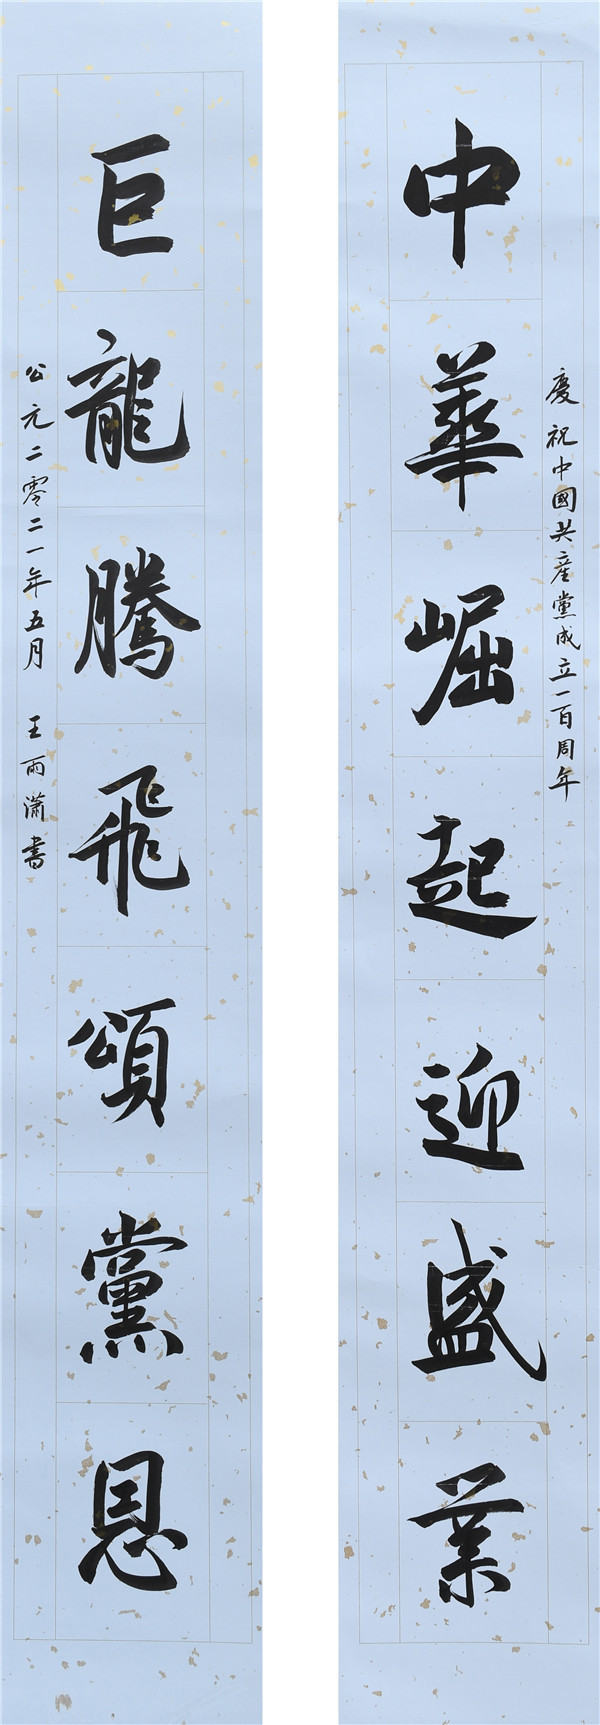 慶祝中國共産黨成立一百周年
中華崛起迎盛業
巨龍騰飛頌黨恩
公元二零二一年五月 王雨瀟書